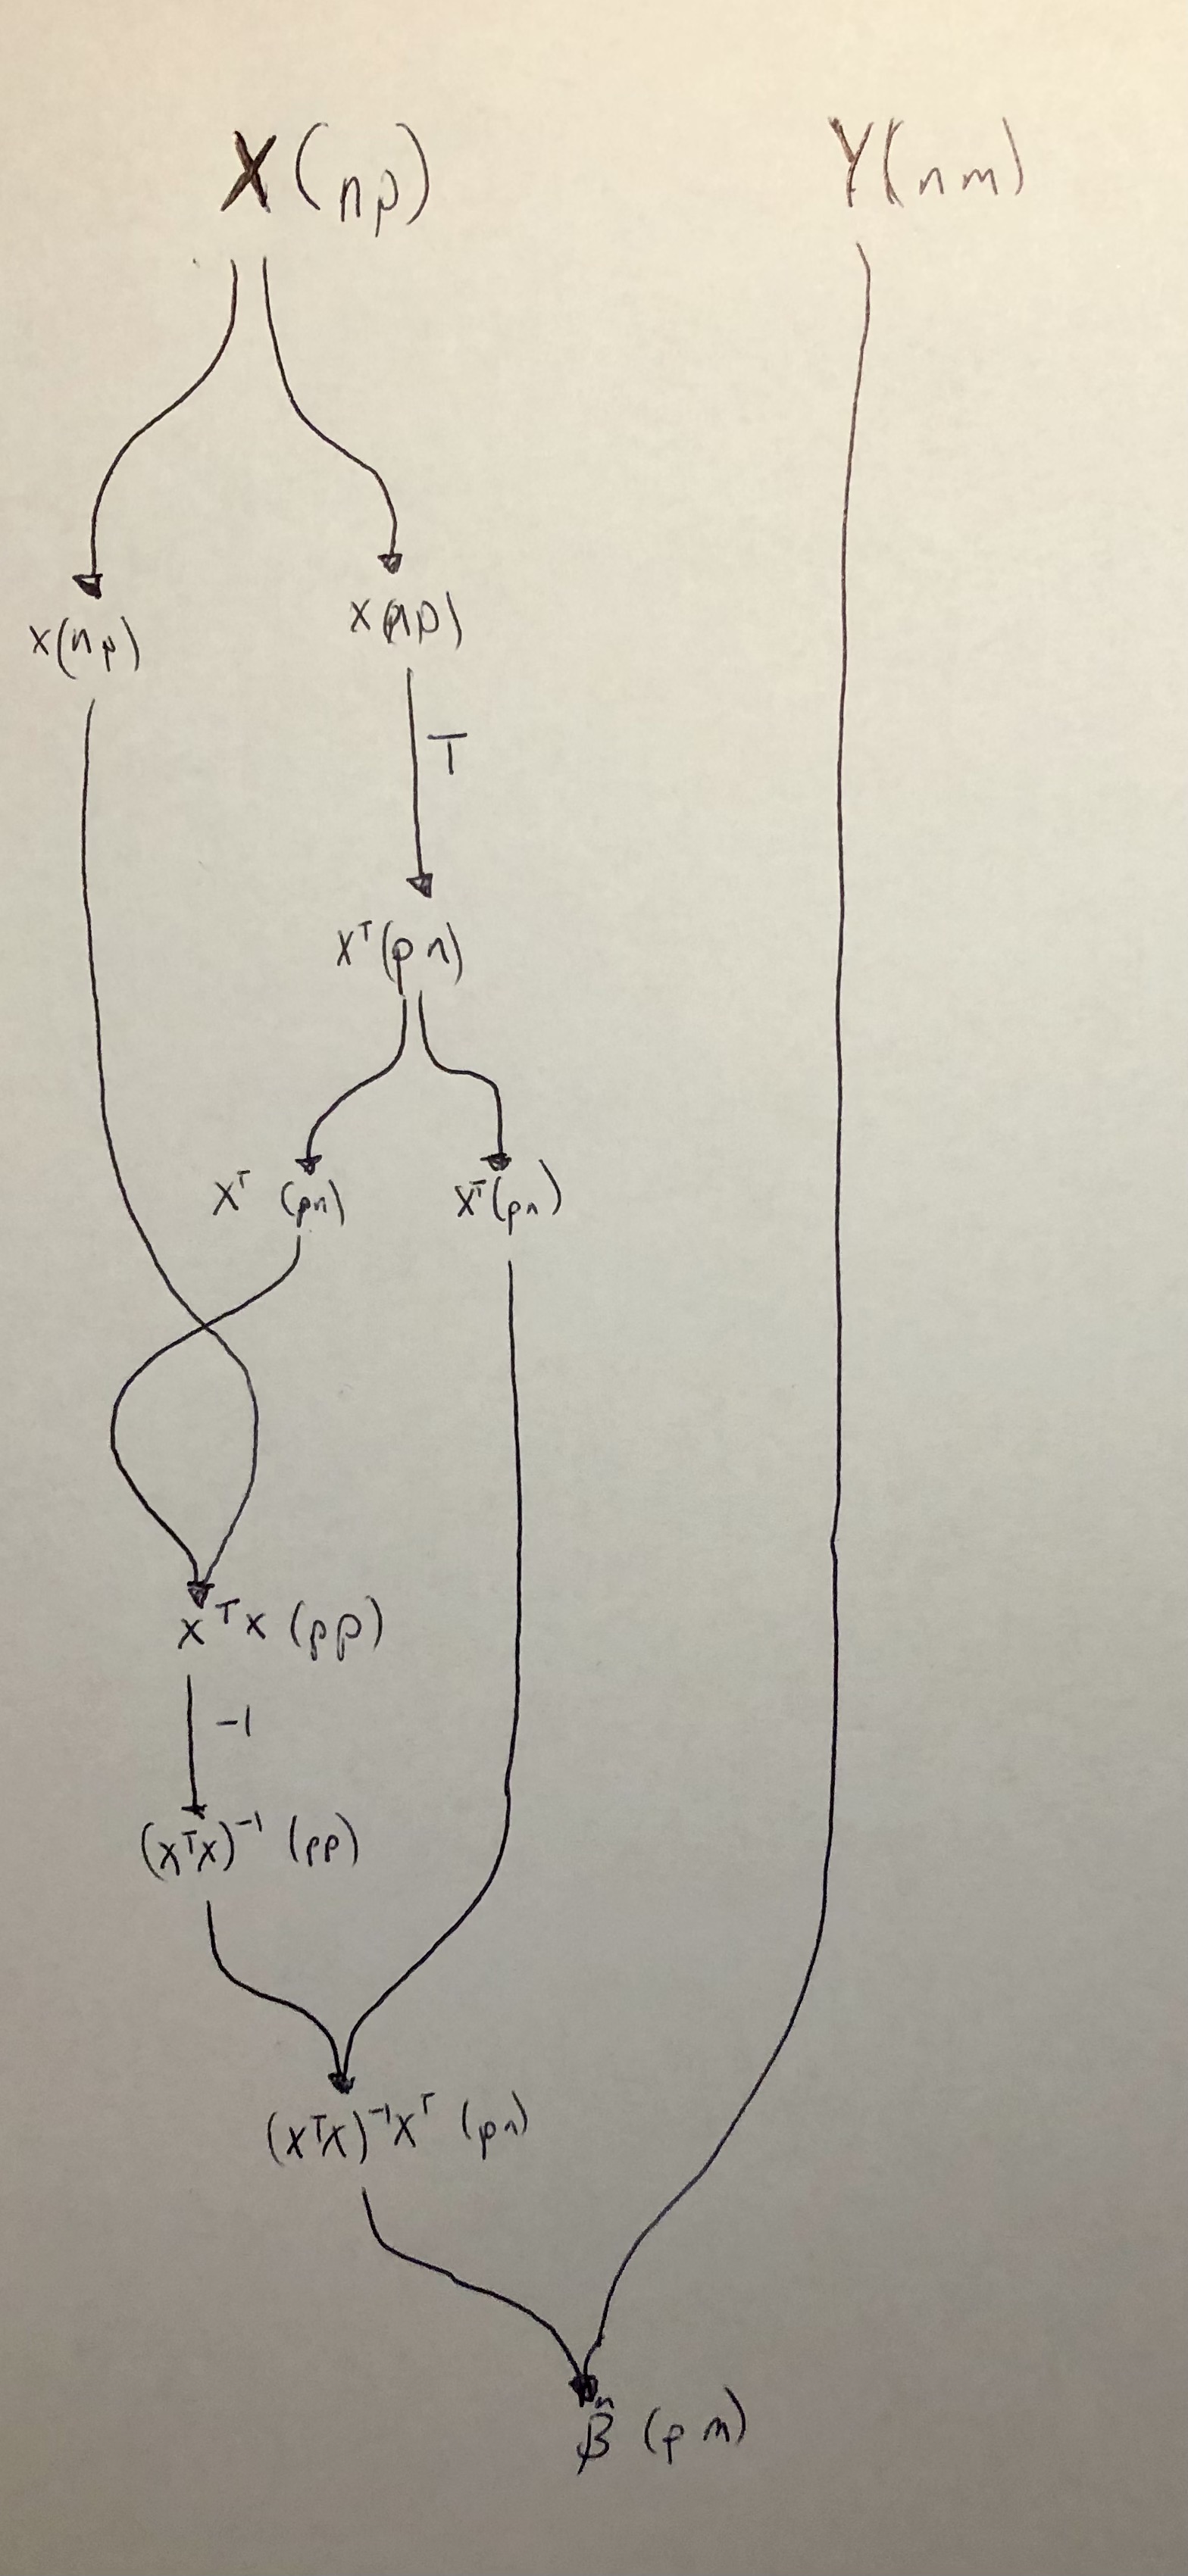 X(np) Y(nm)
X(np) X(np)
T
Xᵀ(pn)
Xᵀ (pn) Xᵀ(pn)
XᵀX (pp)
-1
(XᵀX)⁻¹ (pp)
(XᵀX)⁻¹Xᵀ (pn)
β̂ (pm)